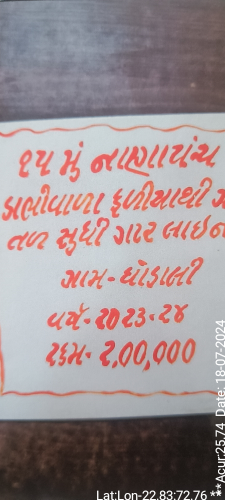 ૧૫ મું નાણાપંચ
ડાભીવાળા ફળીયાથી
તળ સુધી ગટર લાઇન
ગામ- ઘોડાલી
વર્ષ- ૨૦૨૩-૨૪
રકમ- ૨,૦૦,૦૦૦
Lat:Lon-22.83:72.76
**Acur:25.74 Date: 18-07-2024